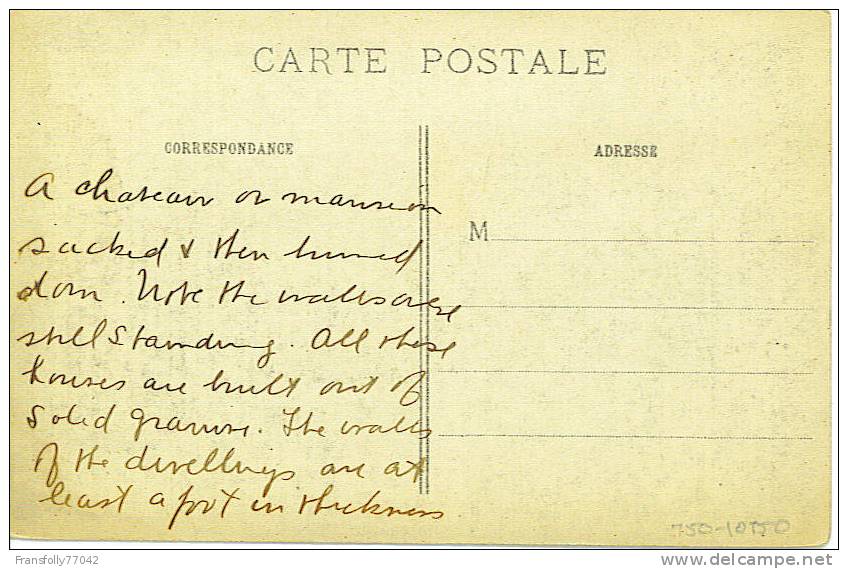 CARTE POSTALE
CORRESPONDANCE
ADRESSE
A chateau or mansion
sacked & then burned
down. Note the walls are
still standing. All these
houses are built out of
solid granite. The walls
of the dwellings are at
least a foot in thickness
M
750-10750
Fransfolly77042
www.delcampe.net